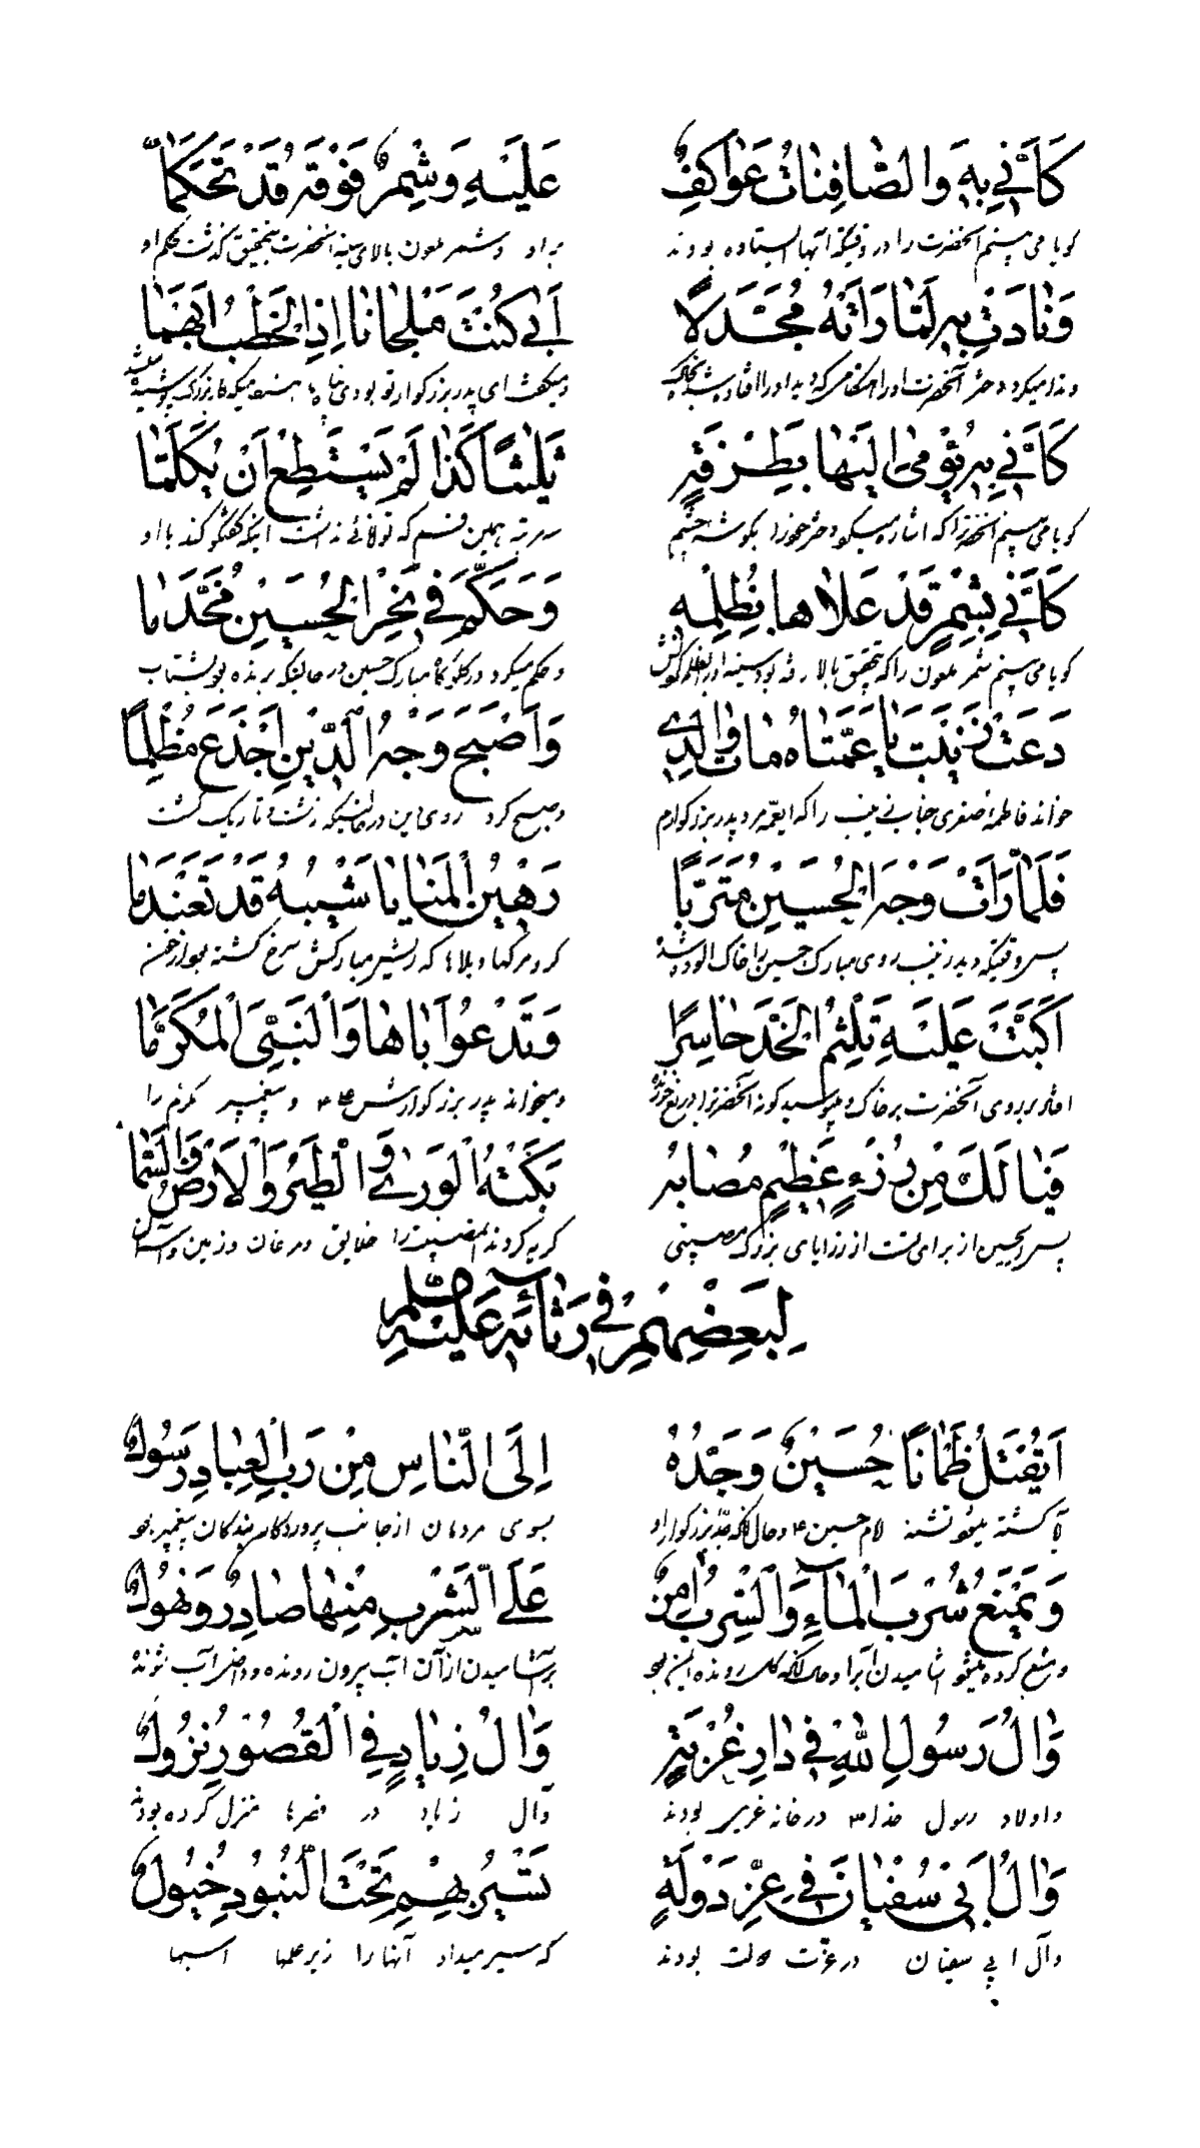 كَأَنّي بِهِ وَالصّافِناتُ عَواكِفٌ عَلَيْهِ وَشِمْرٌ فَوْقَهُ قَدْ تَحَكَّمَا
گویا می‌بینم آنحضرت را در وقتیکه اسبها ایستاده بودند بر او و شمر ملعون بالای سینه آنحضرت بتحقیق گذشت حکم او
وَنادَتْ بِهِ لَمّا رَأَتْهُ مُجَدَّلًا أَبي كُنْتَ مَلْجانا إِذِ الْخَطْبُ أَبْهَمَا
و ندا میکرد دختر آنحضرت او را هنگامیکه دید او را افتاده شده بخاک و میگفت ای پدر بزرگوار تو بودی پناه ما
كَأَنّي بِهِ يُؤْمي إِلَيْها بِطَرْفِهِ ثَلاثًا كَذا لَمْ يَسْتَطِعْ أَنْ يُكَلِّمَا
گویا می‌بینم آنحضرت را که اشاره میکرد دختر خود را بگوشه چشم سه مرتبه همین قسم که توانائی نداشت اینکه گفتگو کند با او
كَأَنّي بِشِمْرٍ قَدْ عَلاها بِظُلْمِهِ وَحَكَّمَ في نَحْرِ الْحُسَيْنِ مُخَذَّمَا
گویا می‌بینم شمر ملعون را که بتحقیق بالا رفته بود سینه او را بظلم و حکم میکرد در گلوگاه مبارک حسین در حالتیکه برنده بود
دَعَتْ زَيْنَبَ يا عَمَّتاهُ ماتَ والِدي وَأَصْبَحَ وَجْهُ الدّينِ أَجْدَعَ مُظْلِمًا
خواند فاطمه صغری جناب زینب را که ایعمه مرد پدر بزرگوارم و صبح کرد روی دین در حالتیکه زشت و تاریک گشت
فَلَمّا رَأَتْ وَجْهَ الْحُسَيْنِ مُتَرَّبًا رَهينُ الْمَنايا شَيْبُهُ قَدْ تَعَنْدَمَا
پس وقتیکه دید زینب روی مبارک حسین را خاک آلود شده گرو مرگها و بلاها که ریش مبارکش سرخ گشته بود از خون
أَكَبَّتْ عَلَيْهِ تَلْثِمُ الْخَدَّ حاسِرًا وَتَدْعُو أَباها وَالنَّبِيَّ الْمُكَرَّمَا
افتاد بر روی آنحضرت بر خاک و میبوسید گونه آنحضرت را و میخواند پدر بزرگوارش ع و پیغمبر مکرم را
فَيا لَكَ مِنْ رُزْءٍ عَظيمٍ مُصابُهُ بَكَتْهُ الْوَرى وَالطَّيْرُ وَالْأَرْضُ وَالسَّمَا
پس از برای تست از رزایای بزرگ مصیبتی گریه کردند آنمصیبت را خلایق و مرغان و زمین و آسمان
لِبَعْضِهِمْ في رَثائِهِ عَلَيْهِ
أَيُقْتَلُ ظَمْآنًا حُسَيْنٌ وَجَدُّهُ إِلَى النّاسِ مِنْ رَبِّ الْعِبادِ رَسُولُ
آیا کشته میشود تشنه امام حسین ع و حال آنکه جد بزرگوار او بسوی مردمان از جانب پروردگار بندگان پیغمبر بود
وَيُمْنَعُ شُرْبَ الْماءِ وَالسِّرْبُ آمِنٌ عَلَى الشُّرْبِ مِنْها صادِرٌ وَنَهُولُ
و منع کرده میشود آشامیدن آب را و حال آنکه گله رونده ایمن بود بر آشامیدن از آن آب بیرون رونده و داخل آب شونده
وَآلُ رَسُولِ اللّٰهِ في دارِ غُرْبَةٍ وَآلُ زِيادٍ فِي الْقُصُورِ نُزُولُ
و اولاد رسول خدا ص در خانه غریبی بودند و آل زیاد در قصرها منزل کرده بودند
وَآلُ أَبي سُفْيانَ في عِزِّ دَوْلَةٍ تَسيرُ بِهِمْ تَحْتَ الْبُنُودِ خُيُولُ
و آل ابی سفیان در عزت دولت بودند که سیر میداد آنها را زیر علمها اسبها